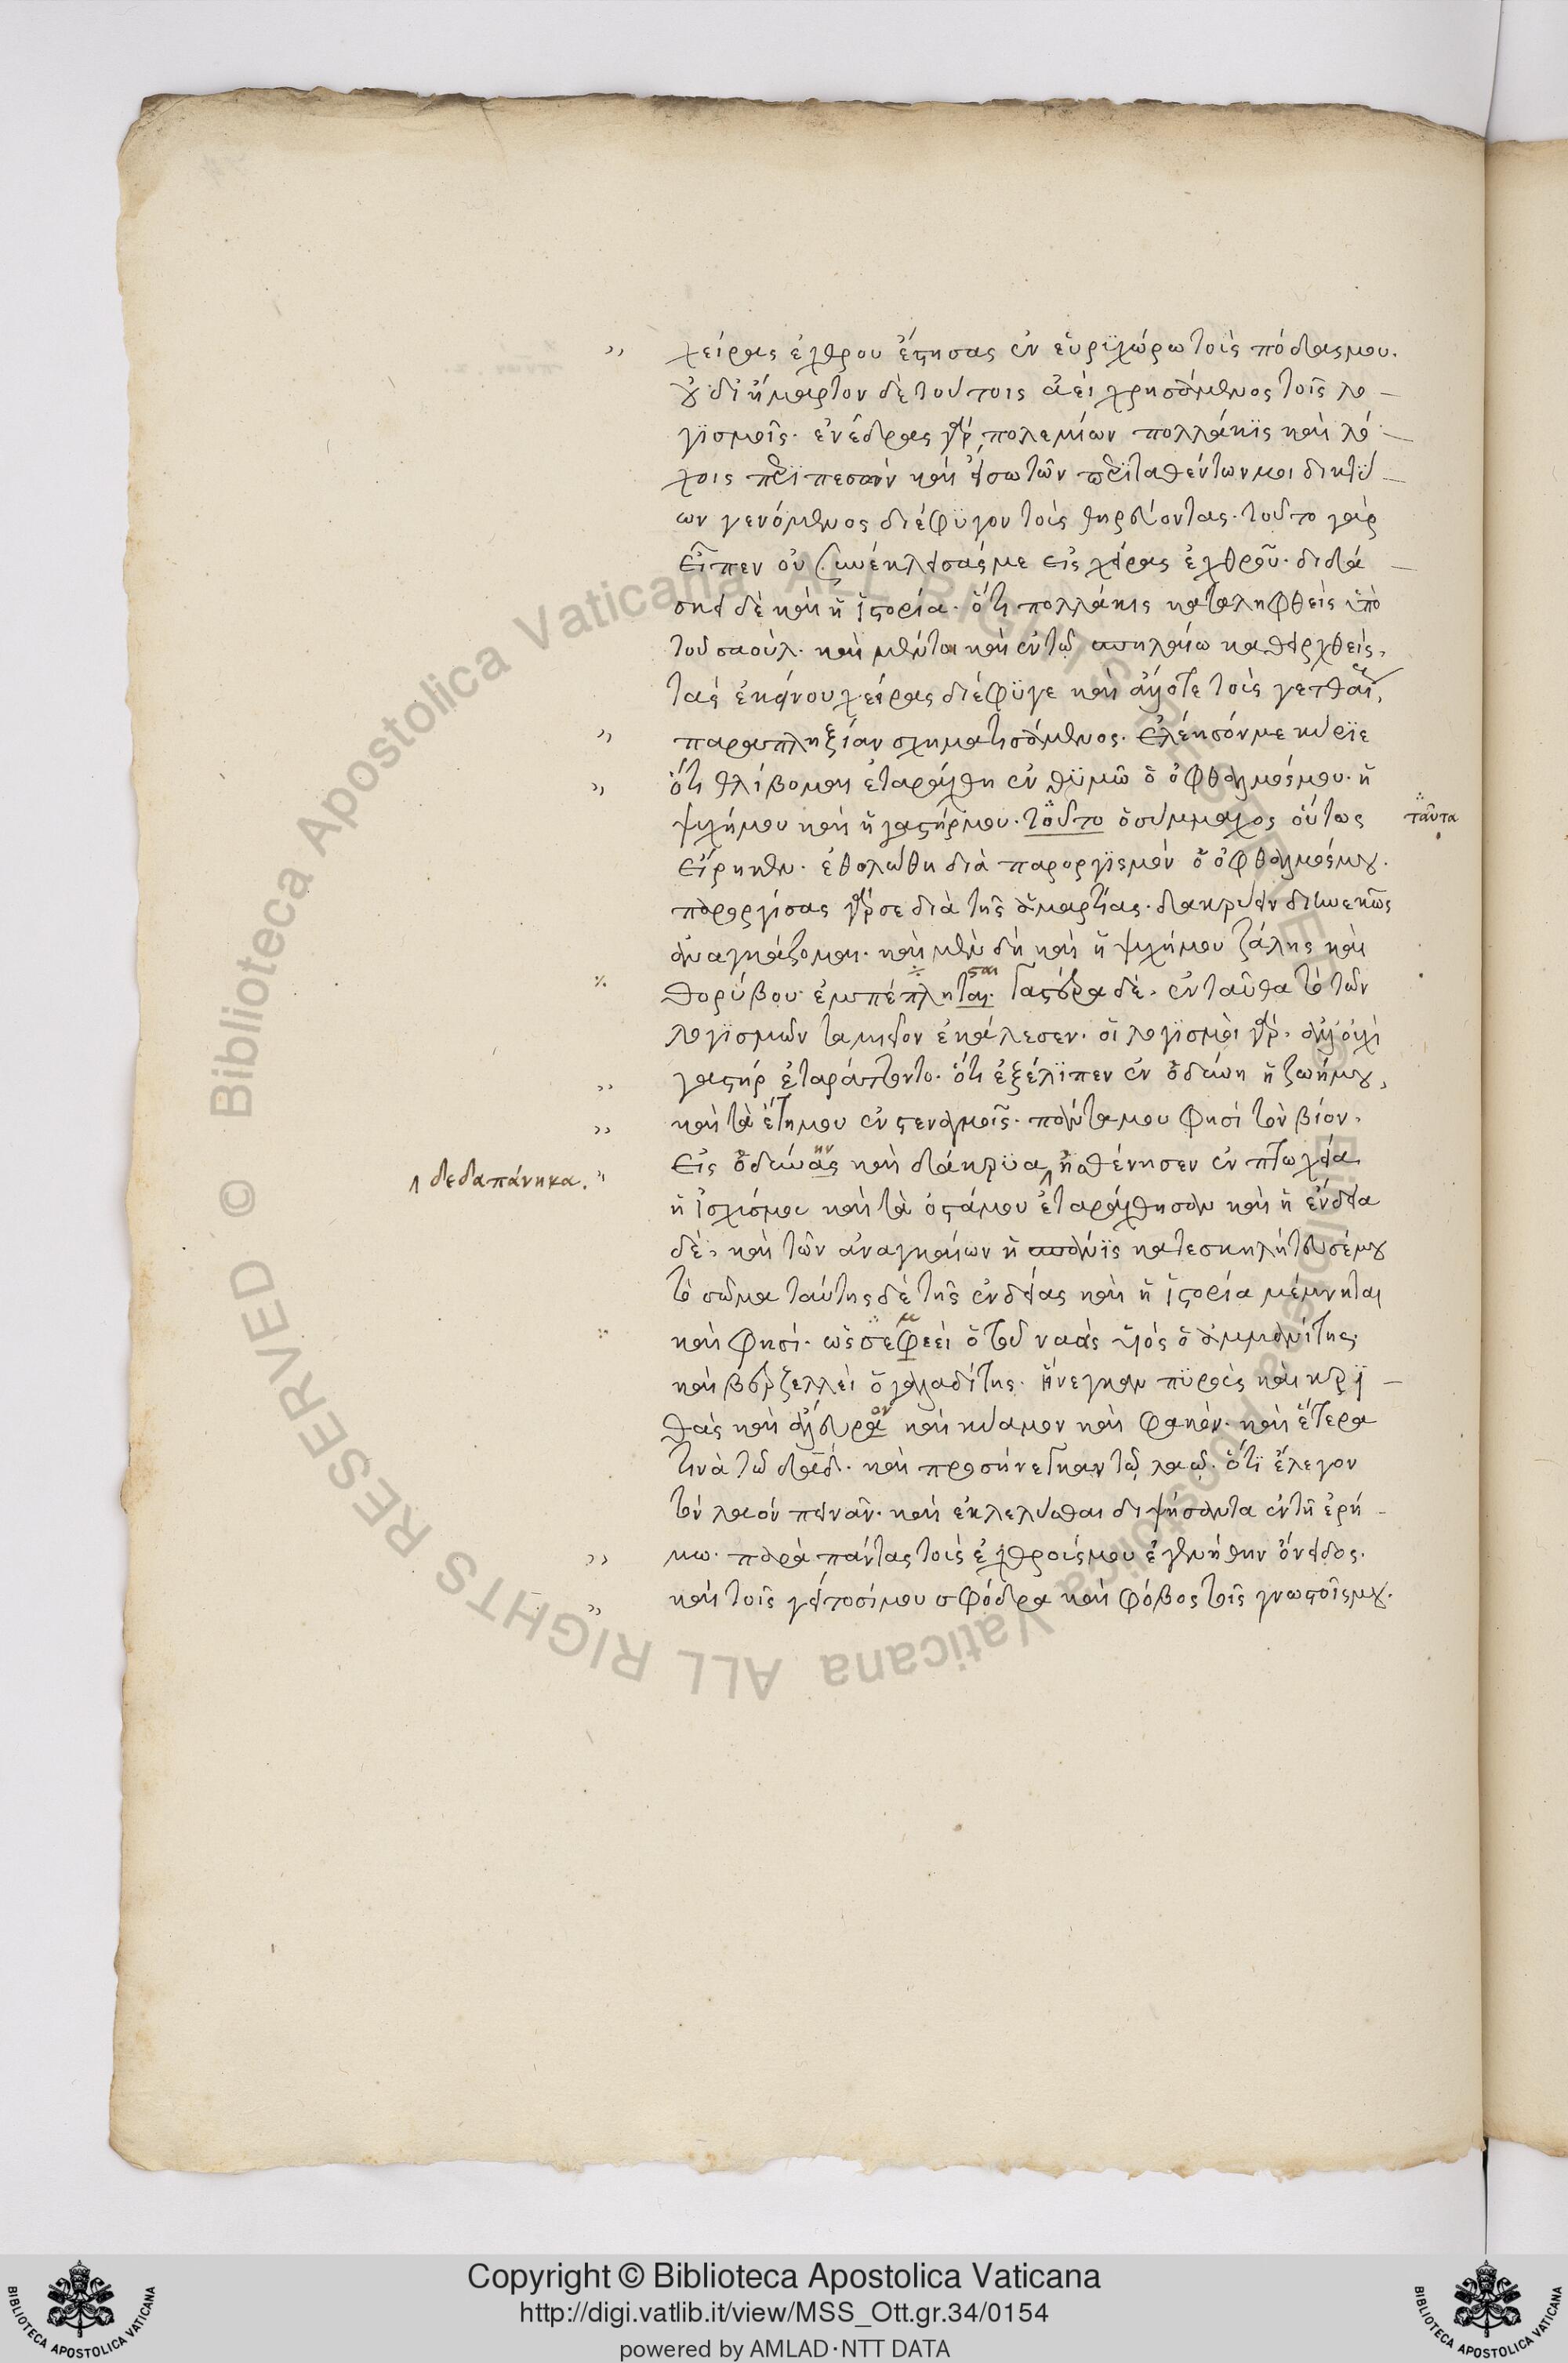 χεῖρας ἐχθροῦ ἔστησας ἐν εὐρυχώρω τοὺς πόδας μου.
οὐ διήμαρτον δὲ τούτοις ἀεὶ χρησάμενος τοῖς λο-
γισμοῖς. ἐνέδραις γὰρ πολεμίων πολλάκις καὶ λό-
χοις περιπεσὼν καὶ εἴσω τῶν περιταθέντων μοι δικτύ-
ων γενόμενος διέφυγον τοὺς θηρεύοντας. τοῦτο γὰρ
εἶπεν οὐ συνέκλεισάς με εἰς χεῖρας ἐχθροῦ. διδά-
σκει δὲ καὶ ἡ ἱστορία. ὅτι πολλάκις καταληφθεὶς ὑπὸ
τοῦ σαούλ. καὶ μέντοι καὶ ἐν τῶ σπηλαίω καθειρχθείς,
τὰς ἐκείνου χεῖρας διέφυγε καὶ αὖτε τοὺς γετθαί,
παραπληξίαν σχηματισάμενος. ἐλέησόν με κύριε
ὅτι θλίβομαι ἐταράχθη ἐν θυμῶ ὁ ὀφθαλμός μου. ἡ
ψυχή μου καὶ ἡ γαστήρ μου. τοῦτο ὁ σύμμαχος οὕτως
ταῦτα
εἴρηκεν. ἐθολώθη διὰ παροργισμὸν ὁ ὀφθαλμός μου.
παροργίσας γάρ σε διὰ τῆς ἁμαρτίας. δακρύειν διηνεκῶς
ἀναγκάζομαι. καὶ μὲν δὴ καὶ ἡ ψυχή μου ζάλης καὶ
θορύβου ἐμπέπληται. σαι γαστέρα δὲ, ἐνταῦθα τὸ τῶν
λογισμῶν ταμιεῖον ἐκάλεσεν. οἱ λογισμοὶ γὰρ, ἀλλ' οὐχὶ
γαστὴρ ἐταράττοντο. ὅτι ἐξέλιπεν ἐν ὀδύνη ἡ ζωή μου,
καὶ τὰ ἔτη μου ἐν στεναγμοῖς. πάντα μου φησὶ τὸν βίον,
εἰς ὀδύνας ην καὶ δάκρυα ἠσθένησεν ἐν πτωχεία
δεδαπάνηκα.
ἡ ἰσχύς μου καὶ τὰ ὀστᾶ μου ἐταράχθησαν καὶ ἡ ἔνδεια
δὲ, καὶ τῶν ἀναγκαίων ἡ σπάνις κατεσκηλήτευσέ μου
τὸ σῶμα ταύτης δὲ τῆς ἐνδείας καὶ ἡ ἱστορία μέμνηται
καὶ φησί. ὡς σεφεεὶ μ ὁ τοῦ ναὰς υἱὸς ὁ ἀμμανίτης.
καὶ βερζελλεὶ ὁ γαλαδίτης. ἤνεγκαν πυροὺς καὶ κρι-
θὰς καὶ ἄλευρα ον καὶ κύαμον καὶ φακόν. καὶ ἕτερα
τινὰ τῶ δαδ. καὶ προσήνεγκαν τῶ λαῶ. ὅτι ἔλεγον
τὸν λαὸν πεινᾶν. καὶ ἐκλελύσθαι διψήσαντα ἐν τῆ ἐρή-
μω. παρὰ πάντας τοὺς ἐχθρούς μου ἐγενήθην ὄνειδος.
καὶ τοῖς γείτοσί μου σφόδρα καὶ φόβος τοῖς γνωστοῖς μου.
Copyright © Biblioteca Apostolica Vaticana
http://digi.vatlib.it/view/MSS_Ott.gr.34/0154
powered by AMLAD·NTT DATA
BIBLIOTECA APOSTOLICA VATICANA
BIBLIOTECA APOSTOLICA VATICANA
© Biblioteca Apostolica Vaticana ALL RIGHTS RESERVED
© Biblioteca Apostolica Vaticana ALL RIGHTS RESERVED